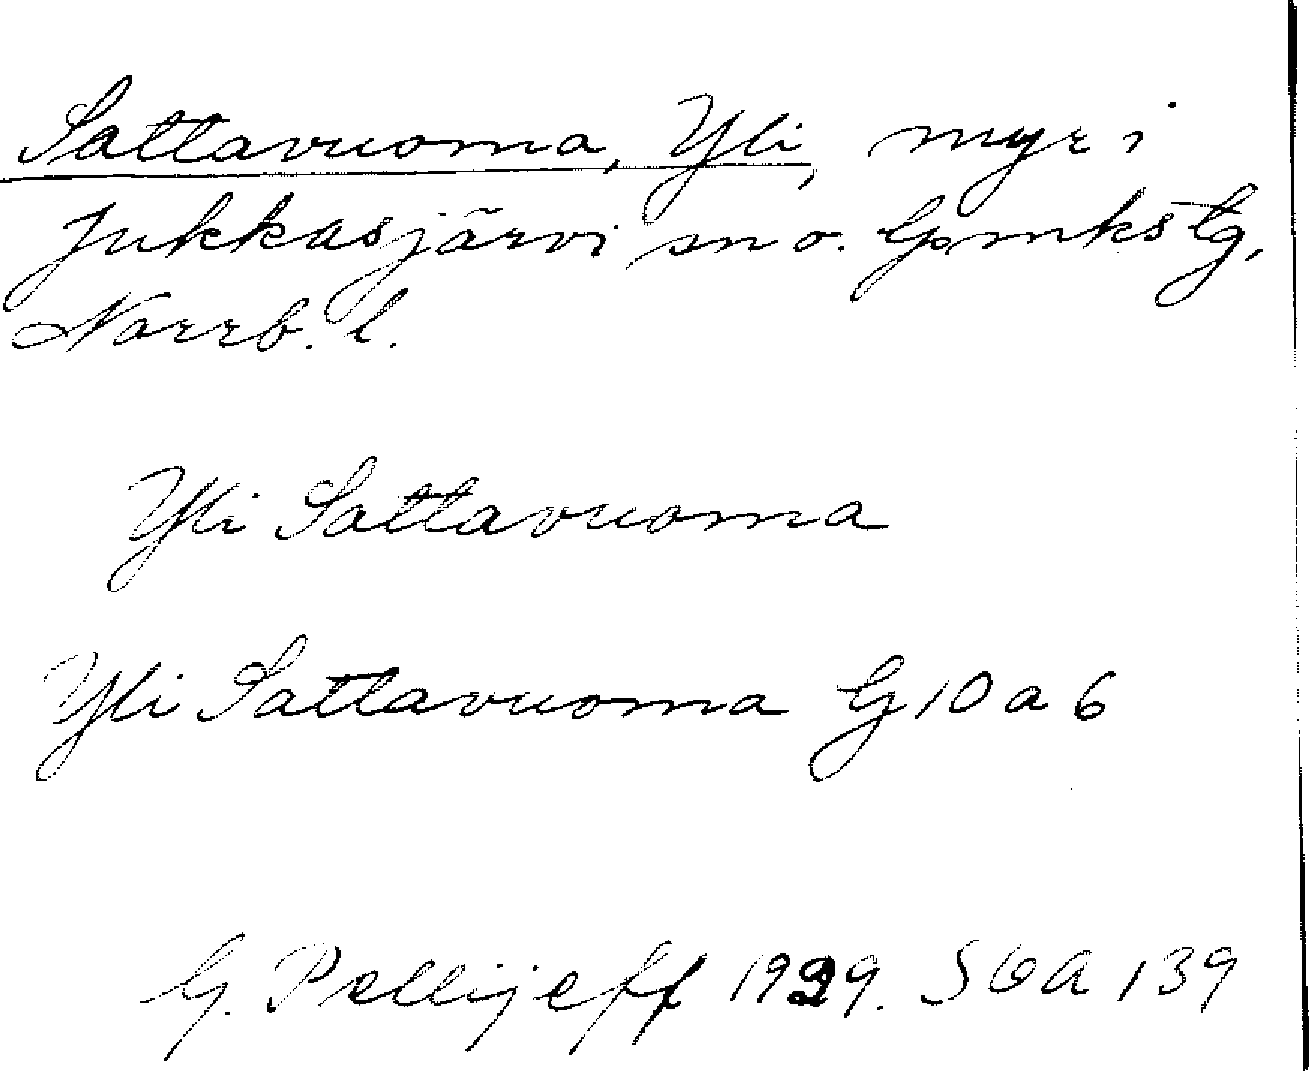 Sattavuoma, Yli, myr i
Jukkasjärvi sn o. Gämkstg,
Norrb. l.
Yli Sattavuoma
Yli Sattavuoma G 10 a 6
G. Pellijeff 1939. SOA 139